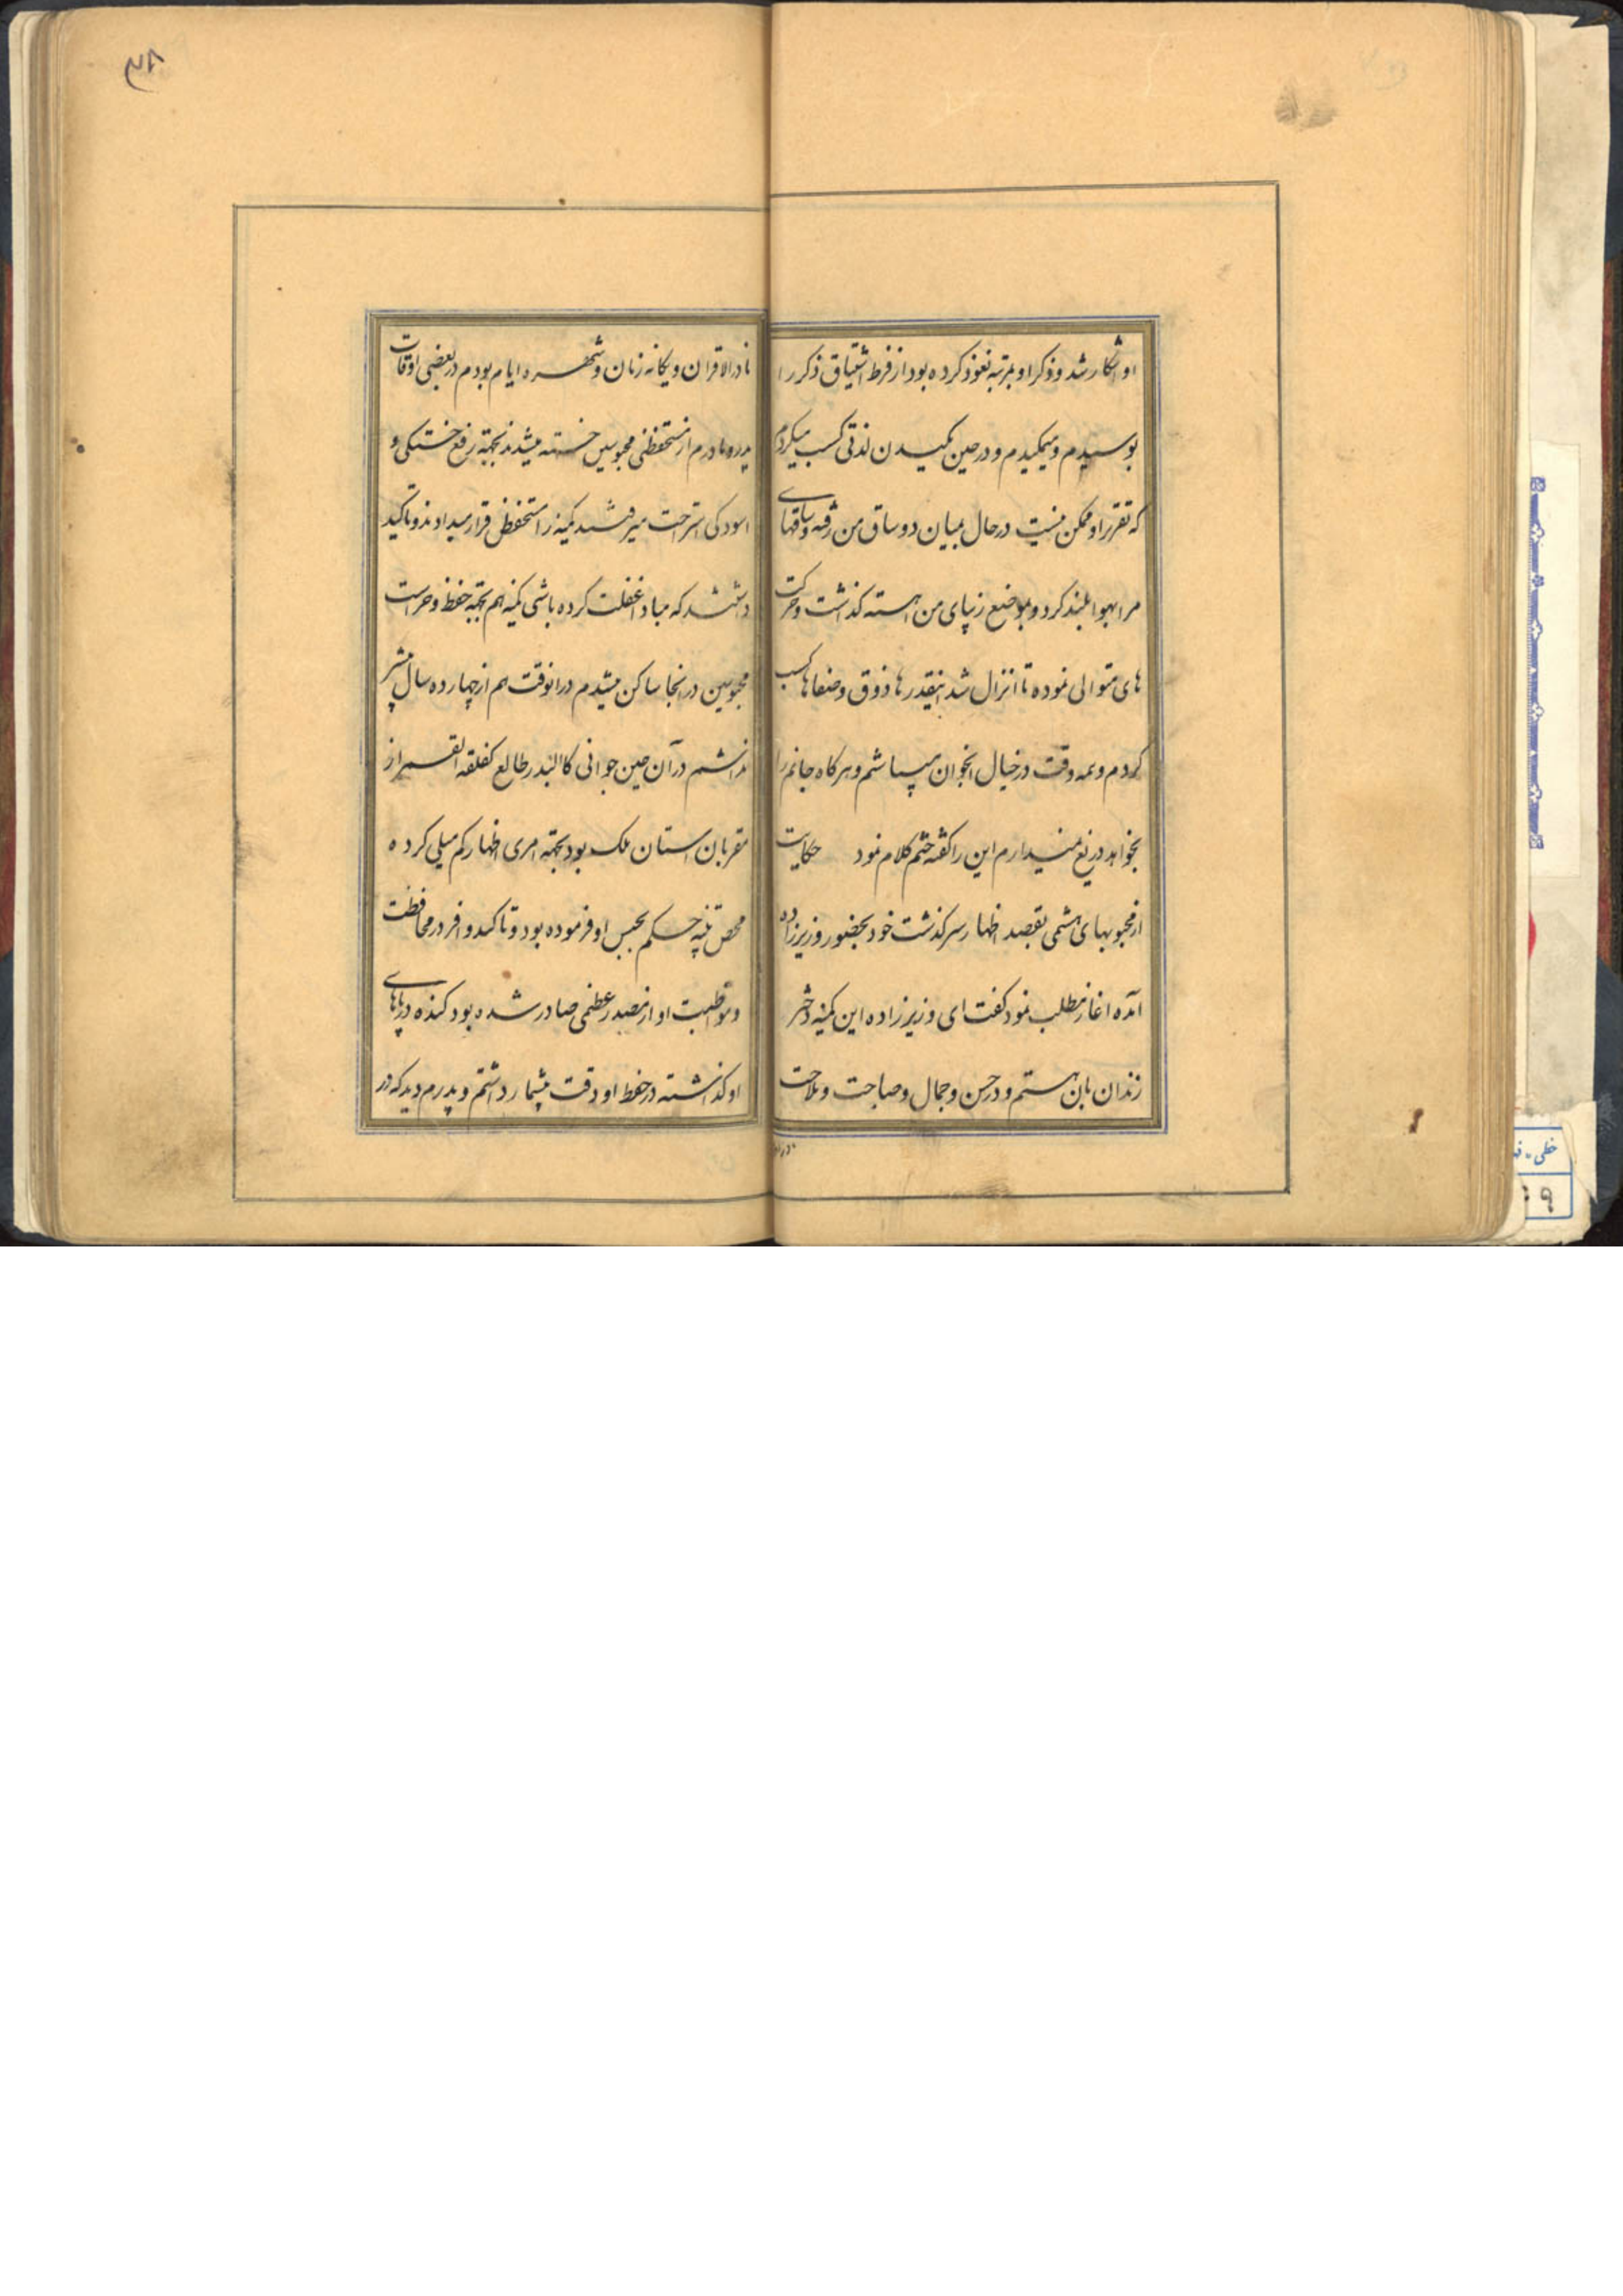 او اشکار شد و ذکر او بمرتبه نعوذ کرده بود از فرط اشتیاق ذکر را
بوسیدم و میمکیدم و در حین مکیدن لذتی کسب میکردم
که تقریر او ممکن نیست در حال بمیان دو ساق من رفته و ساقهای
مرا بهوا بلند کرد و بموضع زیبای من اهسته کذاشت و حرکت
های متوالی نموده تا انزال شد اینقدرها ذوق و صفاها کسب
کردم و همه وقت در خیال انجوان میباشم و هر کاه جانم را
بخواهد دریغ نمیدارم این را کفته ختم کلام نمود حکایت
از محبوبهای هشتمی بقصد اظهار سرکذشت خود بحضور وزیرزاده
آمده اغاز مطلب نمود کفت ای وزیرزاده این کمینه دختر
زندان بان هستم و در حسن و جمال و صباحت و ملاحت
نادر الاقران و یکانه زنان و شهره ایام بودم در بعضی اوقات
پدر و مادرم از مستحفظی محبوسین خسته میشدند بجهته رفع خستکی و
اسودکی استراحت میرفتند کمینه را مستحفظ قرار میدادند و تاکید
داشتند که مبادا غفلت کرده باشی کمینه هم بجهته حفظ و حراست
محبوسین در انجا ساکن میشدم در انوقت هم از چهارده سال بیشتر
نداشتم در آن حین جوانی کالبدر طالع کفلقه القمر از
مقربان استان ملک بود بجهته امری اظهار کم میلی کرده
محض تنبیه حکم بحبس او فرموده بود و تاکید وافر در محافظت
و مواظبت او از مصدر عظمی صادر شده بود کنده در پاهای
او کذاشته در حفظ او دقت بیشمار داشتم و پدرم دید که در
۳۸